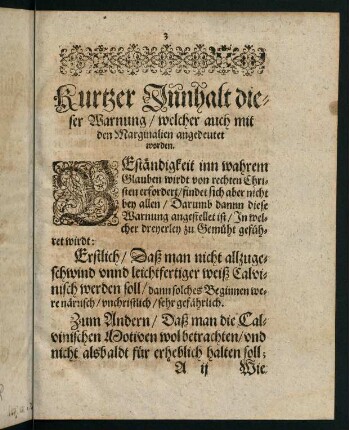 3
Kurtzer Innhalt die-
ser Warnung / welcher auch mit
den Marginalien angedeutet
worden.
BEständigkeit inn wahrem
Glauben wirdt von rechten Chri-
sten erfordert / findet sich aber nicht
bey allen / Darumb dann diese
Warnung angestellet ist / In wel-
cher dreyerley zu Gemüht gefüh-
ret wirdt:
Erstlich / Daß man nicht allzuge-
schwind vnnd leichtfertiger weiß Calvi-
nisch werden soll / dann solches Beginnen we-
re närrisch / vnchristlich / sehr gefährlich.
Zum Andern / Daß man die Cal-
vinischen Motiven wol betrachten / vnd
nicht alsbaldt für erheblich halten soll;
A ij Wie